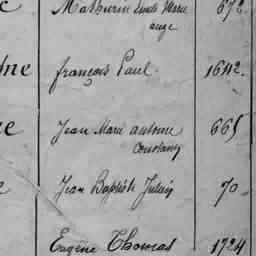 Mathurin Louis Marie 672
ange
françois Paul 1642.
Jean Marie antoine 665
Constant
Jean Baptiste Julien 70
Eugène Thomas 1724